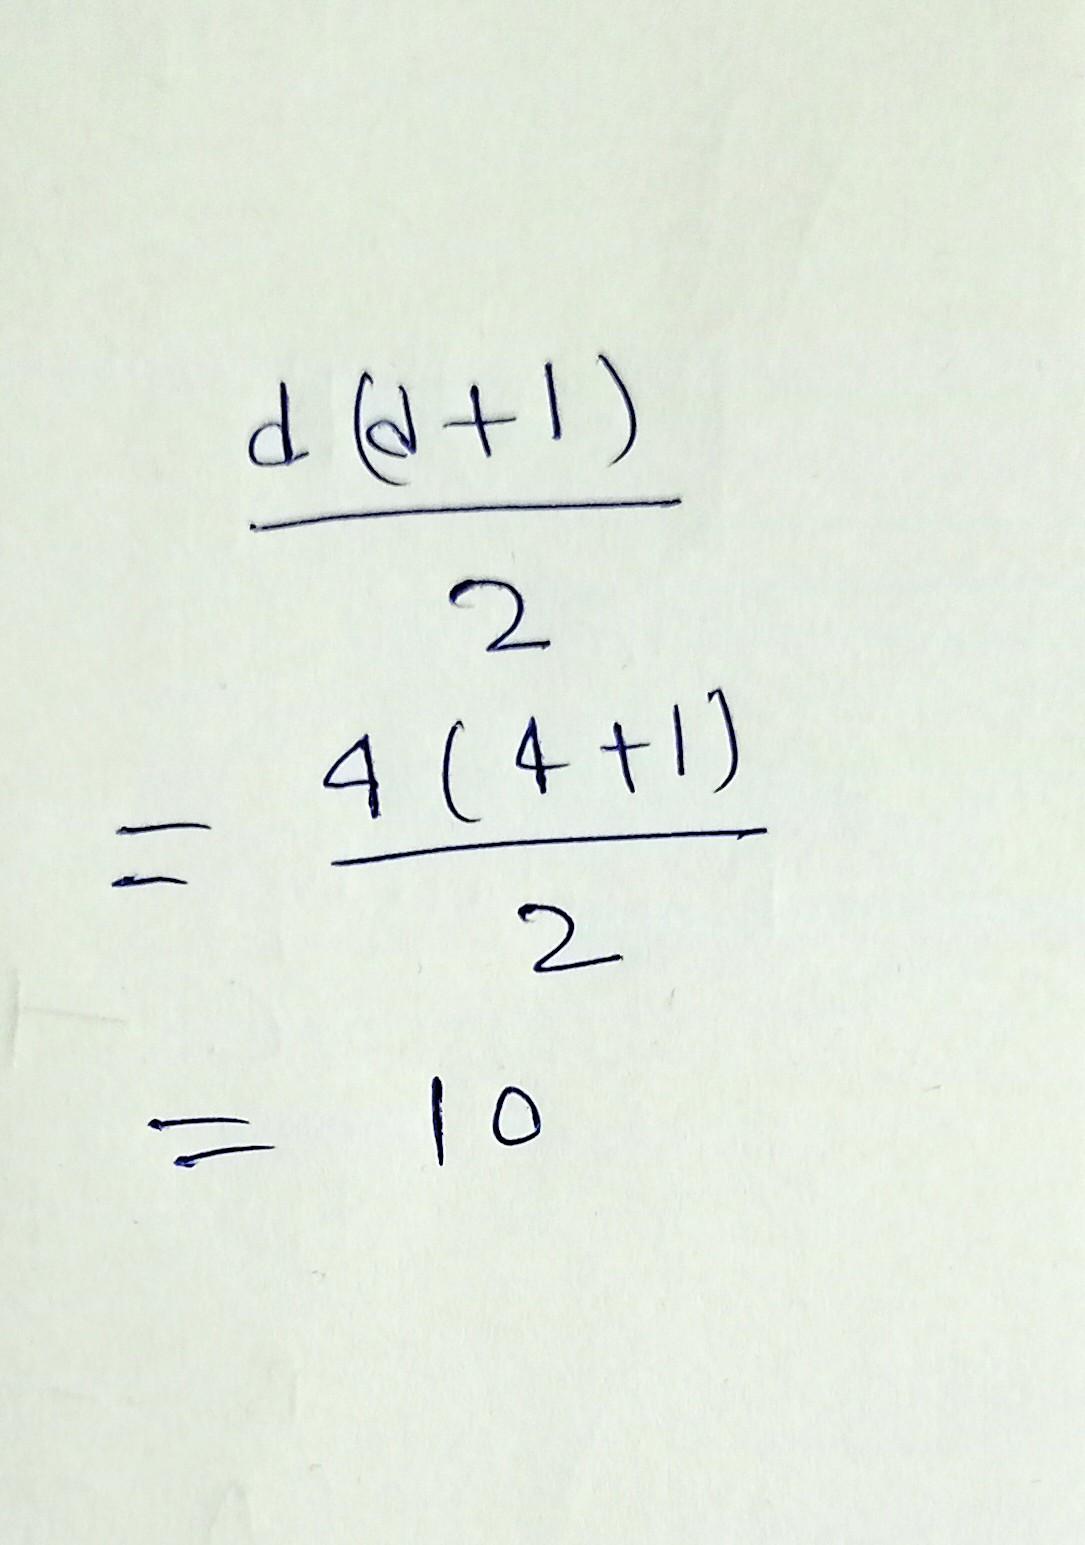 d(d+1)
2
= 4(4+1)
2
= 10